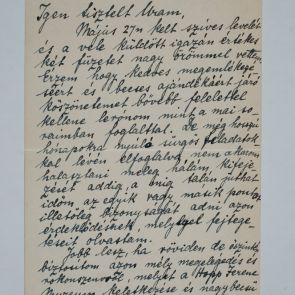 Igen tisztelt Uram.
Május 27n kelt, szives levelét
és a vele küldött igazán értékes
két füzetet nagy örömmel vettem.
Érzem hogy kedves megemlékezé-
séért és becses ajándékáért járó
köszönetemet bővebb felelettel
kellene lerónom mint a mai so-
raimban foglalttal. De még hosszú
hónapokra nyuló sürgős feladatok-
kal lévén elfoglalva nem akarom
halasztani meleg hálám kifeje-
zését addig, a míg talán juthat
időm az egyik vagy másik pontot
illetőleg bizonyságát adni azon
érdeklődésnek, melylyel fejtege-
téseit olvastam.
Jobb lesz, ha röviden de őszintén
biztosítom azon mély megelégedés és
rokonszenvről, melyet a Hopp Ferenc
Muzeum keletkezése és nagybecsű